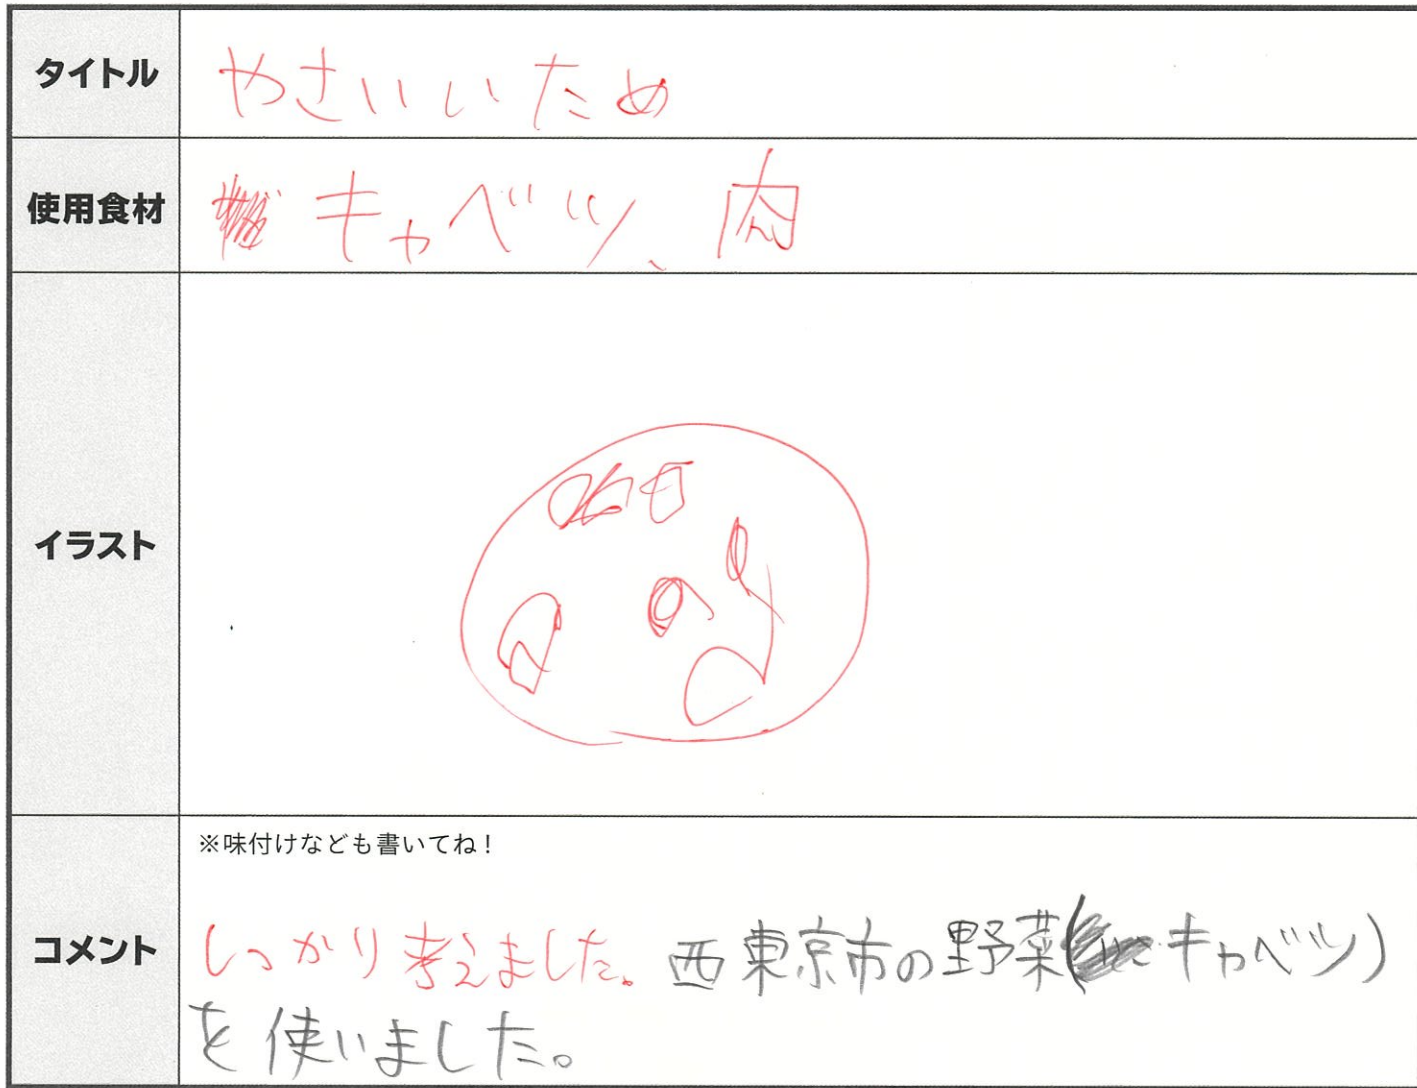 タイトル
やさいいため
使用食材
キャベツ、肉
イラスト
コメント
※味付けなども書いてね！
しっかり考えました。西東京市の野菜(キャベツ)
を使いました。